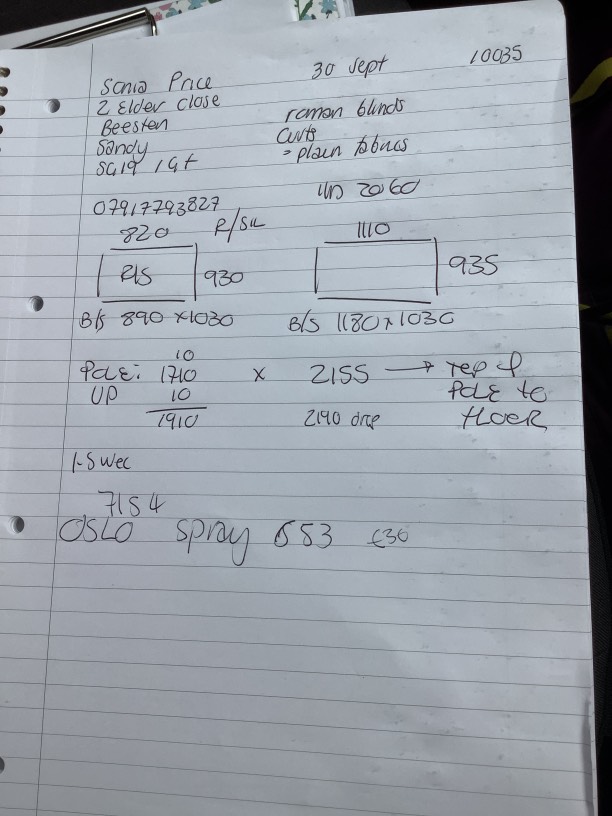 Sonia Price 30 Sept 10035
2 Elder Close
Beesten roman blinds
Sandy Curts
SG19 1GF - plain fabrics
07917793827 2060
820 R/Sill 1110
R/S 930 935
B/S 890 x 1030 B/S 1180 x 1030
10
Pole: 1710 x 2155 → top of
UP 10 Pole to
1910 2190 drop floor
7154
OSLO Spray 653 £36